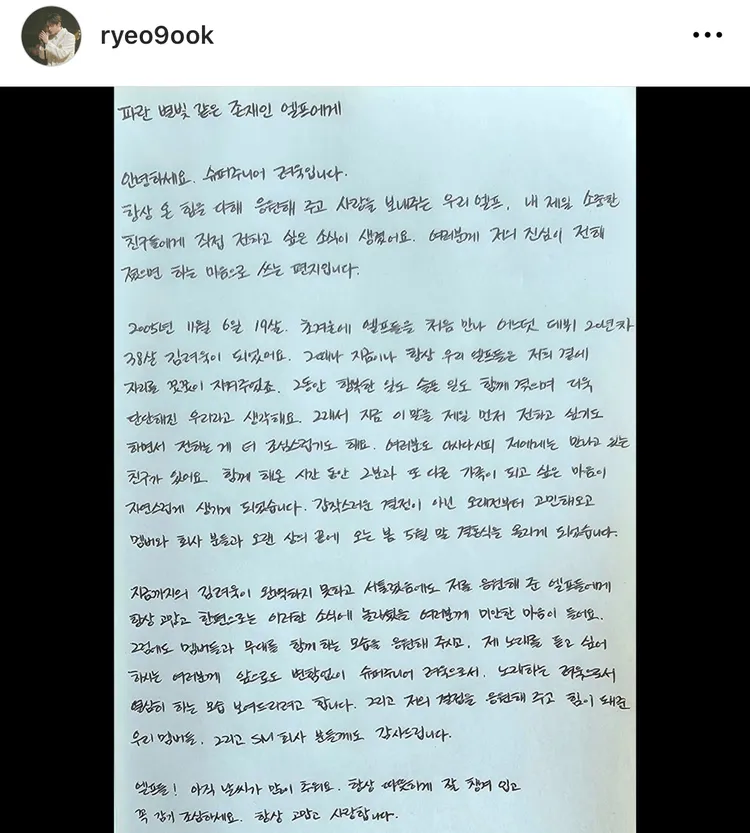 ryeo9ook
파란 별빛 같은 존재인 엘프에게
안녕하세요. 슈퍼주니어 려욱입니다.
항상 온 힘을 다해 응원해 주고 사랑을 보내주는 우리 엘프. 내 제일 소중한
친구들에게 직접 전하고 싶은 소식이 생겼어요. 여러분께 저의 진심이 전해
졌으면 하는 마음으로 쓰는 편지입니다.
2005년 11월 6일 19살. 초겨울에 엘프들을 처음 만나 어느덧 데뷔 20년차
38살 김려욱이 되었어요. 그때나 지금이나 항상 우리 엘프들은 저희 곁에
자리를 꿋꿋이 지켜주었죠. 그동안 행복한 일도 슬픈 일도 함께 겪으며 더욱
단단해진 우리라고 생각해요. 그래서 지금 이 말을 제일 먼저 전하고 싶기도
하면서 전하는 게 더 조심스럽기도 해요. 여러분도 아시다시피 저에게는 만나고 있는
친구가 있어요. 함께 해온 시간 동안 그분과 또 다른 가족이 되고 싶은 마음이
자연스럽게 생기게 되었습니다. 갑작스러운 결정이 아닌 오래전부터 고민해오고
멤버와 회사 분들과 오랜 상의 끝에 오는 봄 5월 말 결혼식을 올리게 되었습니다.
지금까지의 김려욱이 완벽하지 못하고 서툴렀음에도 저를 응원해 준 엘프들에게
항상 고맙고 한편으로는 이러한 소식에 놀라셨을 여러분께 미안한 마음이 들어요.
그럼에도 멤버들과 무대를 함께 하는 모습을 응원해 주시고. 제 노래를 듣고 싶어
하시는 여러분께 앞으로도 변함없이 슈퍼주니어 려욱으로서. 노래하는 려욱으로서
열심히 하는 모습 보여드리려고 합니다. 그리고 저의 결정을 응원해 주고 힘이 돼준
우리 멤버들. 그리고 SM 회사 분들께도 감사드립니다.
엘프들! 아직 날씨가 많이 추워요. 항상 따뜻하게 잘 챙겨 입고
꼭 감기 조심하세요. 항상 고맙고 사랑합니다.